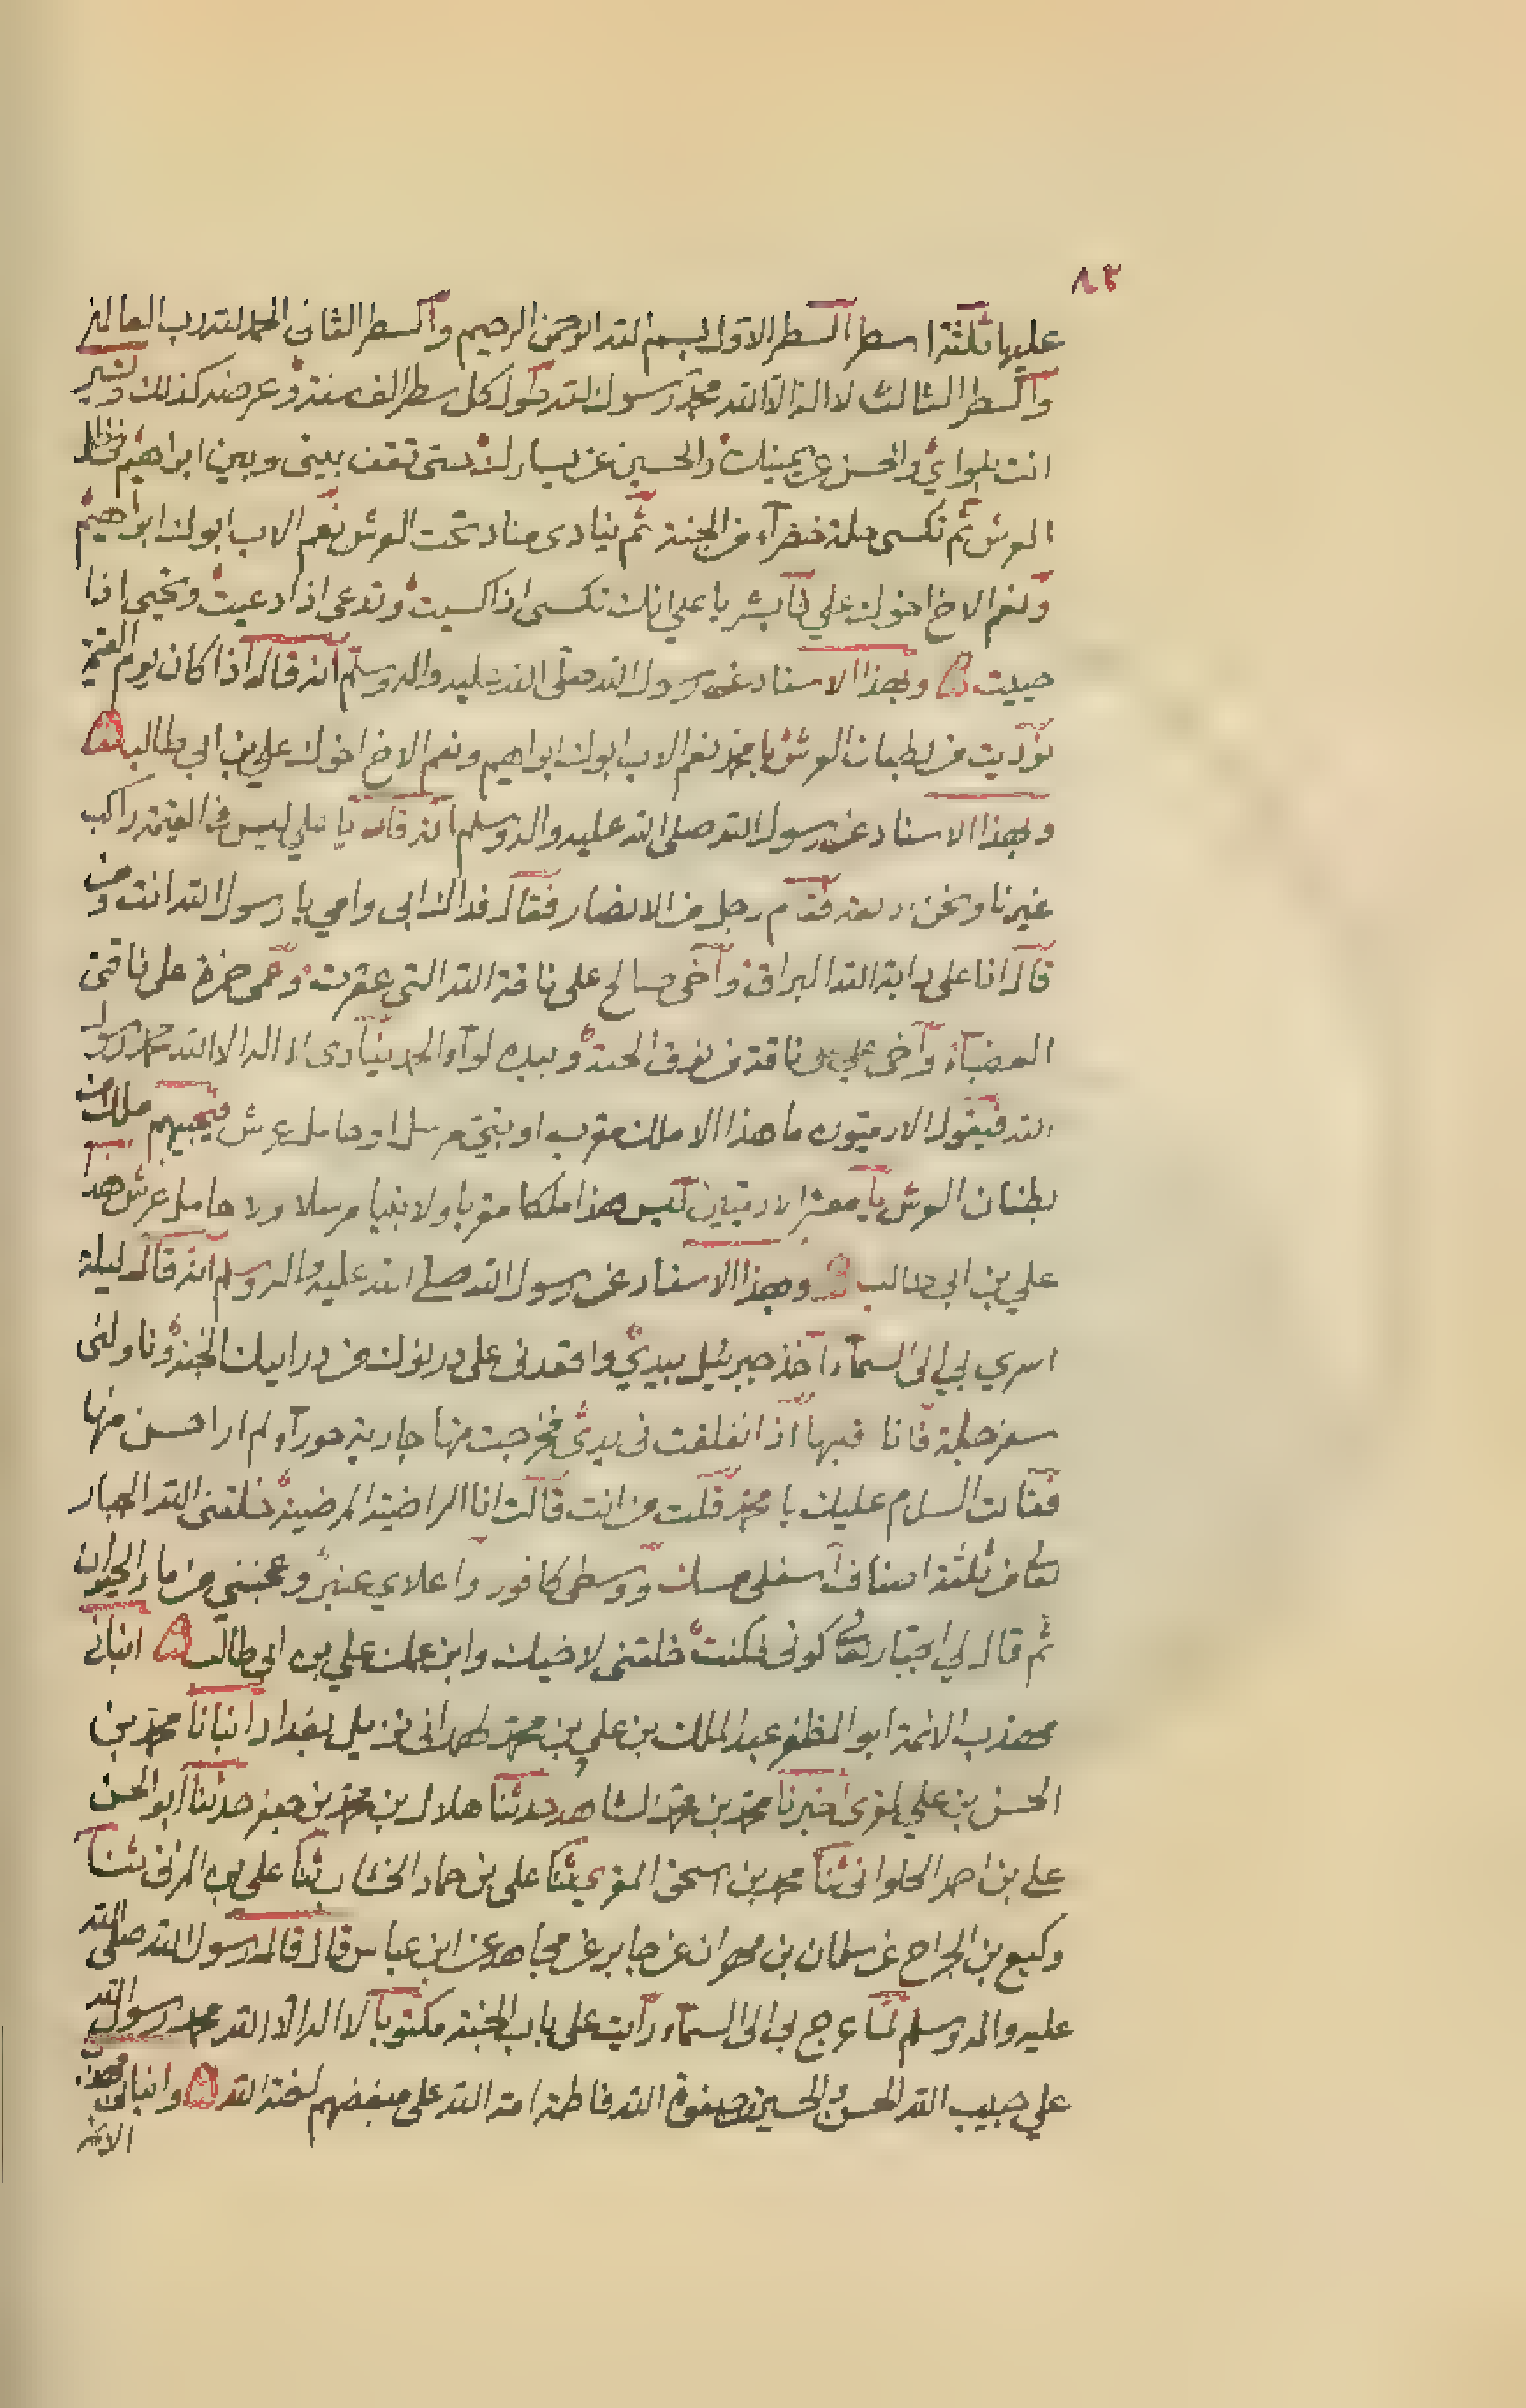 ٨٢
عليها ثلثة اسطر السطر الاول بسم الله الرحمن الرحيم والسطر الثاني الحمد لله رب العالمين
والسطر الثالث لا اله الا الله محمد رسول الله طول كل سطر الف سنة وعرضه كذلك وتسير
انت بلوائي والحسن عن يمينك والحسين عن يسارك حتى تقف بيني وبين ابراهيم في ظل
العرش ثم تكسى حلة خضرآء من الجنة ثم ينادى مناد تحت العرش نعم الاب ابوك ابراهيم
ونعم الاخ اخوك علي فابشر يا علي انك تكسى اذا كسيت وتدعى اذا دعيت وتحيى اذا
حييت وبهذا الاسناد عن رسول الله صلى الله عليه واله وسلم انه قال اذا كان يوم القيمة
نوديت من بطنان العرش يا محمد نعم الاب ابوك ابراهيم ونعم الاخ اخوك علي بن ابي طالب
وبهذا الاسناد عن رسول الله صلى الله عليه واله وسلم انه قال يا علي ليس في القيمة راكب
غيرنا ونحن اربعة فقام رجل من الانصار فقال فداك ابي وامي يا رسول الله انت ومن
قال انا على دابة الله البراق واخي صالح على ناقة الله التي عقرت وعمي حمزة على ناقتي
العضبآء واخي علي على ناقة من نوق الجنة وبيده لوآء الحمد ينادى لا اله الا الله محمد رسول
الله فيقول الادميون ما هذا الا ملك مقرب او نبي مرسل او حامل عرش فيجيبهم ملك من
بطنان العرش يا معشر الادميين ليس هذا ملكا مقربا ولا نبيا مرسلا ولا حامل عرش هذا
علي بن ابي طالب وبهذا الاسناد عن رسول الله صلى الله عليه واله وسلم انه قال ليلة
اسري بي الى السمآء اخذ جبرئيل بيدي واقعدني على درنوك من درانيك الجنة وناولني
سفرجلة فانا اقلبها اذا انفلقت في يدي فخرجت منها جارية حورآء لم ار احسن منها
فقالت السلام عليك يا محمد فقلت من انت قالت انا الراضية المرضية خلقني الله الجبار
تعالى من ثلثة اصناف اسفلي مسك ووسطي كافور واعلاي عنبر وعجنني من ماء الحيوان
ثم قال لي الجبار تعالى كوني فكنت خلقني لاخيك وابن عمك علي بن ابي طالب انباني
مهذب الائمة ابو المظفر عبد الملك بن علي بن محمد الهمداني نزيل بغداد انبانا محمد بن
الحسن بن علي المقري اخبرنا محمد بن محمد الشاهد حدثنا هلال بن محمد بن جعفر حدثنا ابو الحسن
علي بن احمد الحلواني ثنا محمد بن اسحق المقري ثنا علي بن حماد الخشاب ثنا علي بن المديني ثنا
وكيع بن الجراح عن سلمان بن مهران عن جابر عن مجاهد عن ابن عباس قال قال رسول الله صلى الله
عليه واله وسلم لما عرج بي الى السمآء رايت على باب الجنة مكتوبا لا اله الا الله محمد رسول الله
علي حبيب الله الحسن والحسين صفوة الله فاطمة امة الله على مبغضهم لعنة الله وانباني مهذب
الائمة